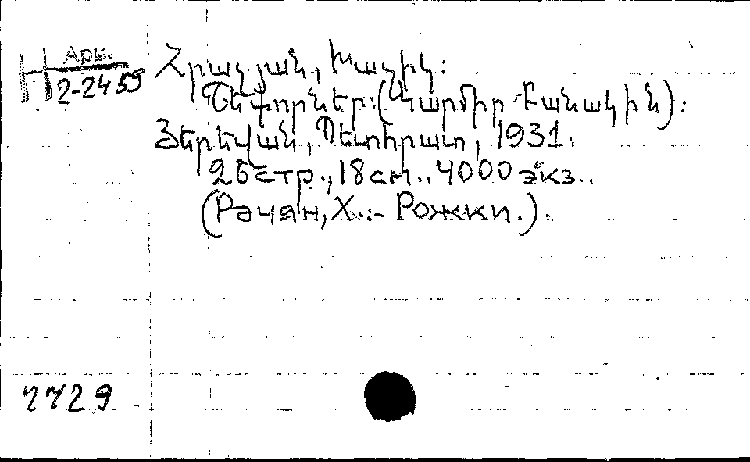 Арм.
2-2459
Հրաչյան, Խաչիկ:
Շեփորներ: (Կարմիր Բանակին):
Յերեվան, Պետհրատ, 1931.
26 стр., 18 см.. 4000 экз..
(Рачян, Х..- Рожки.).
7729